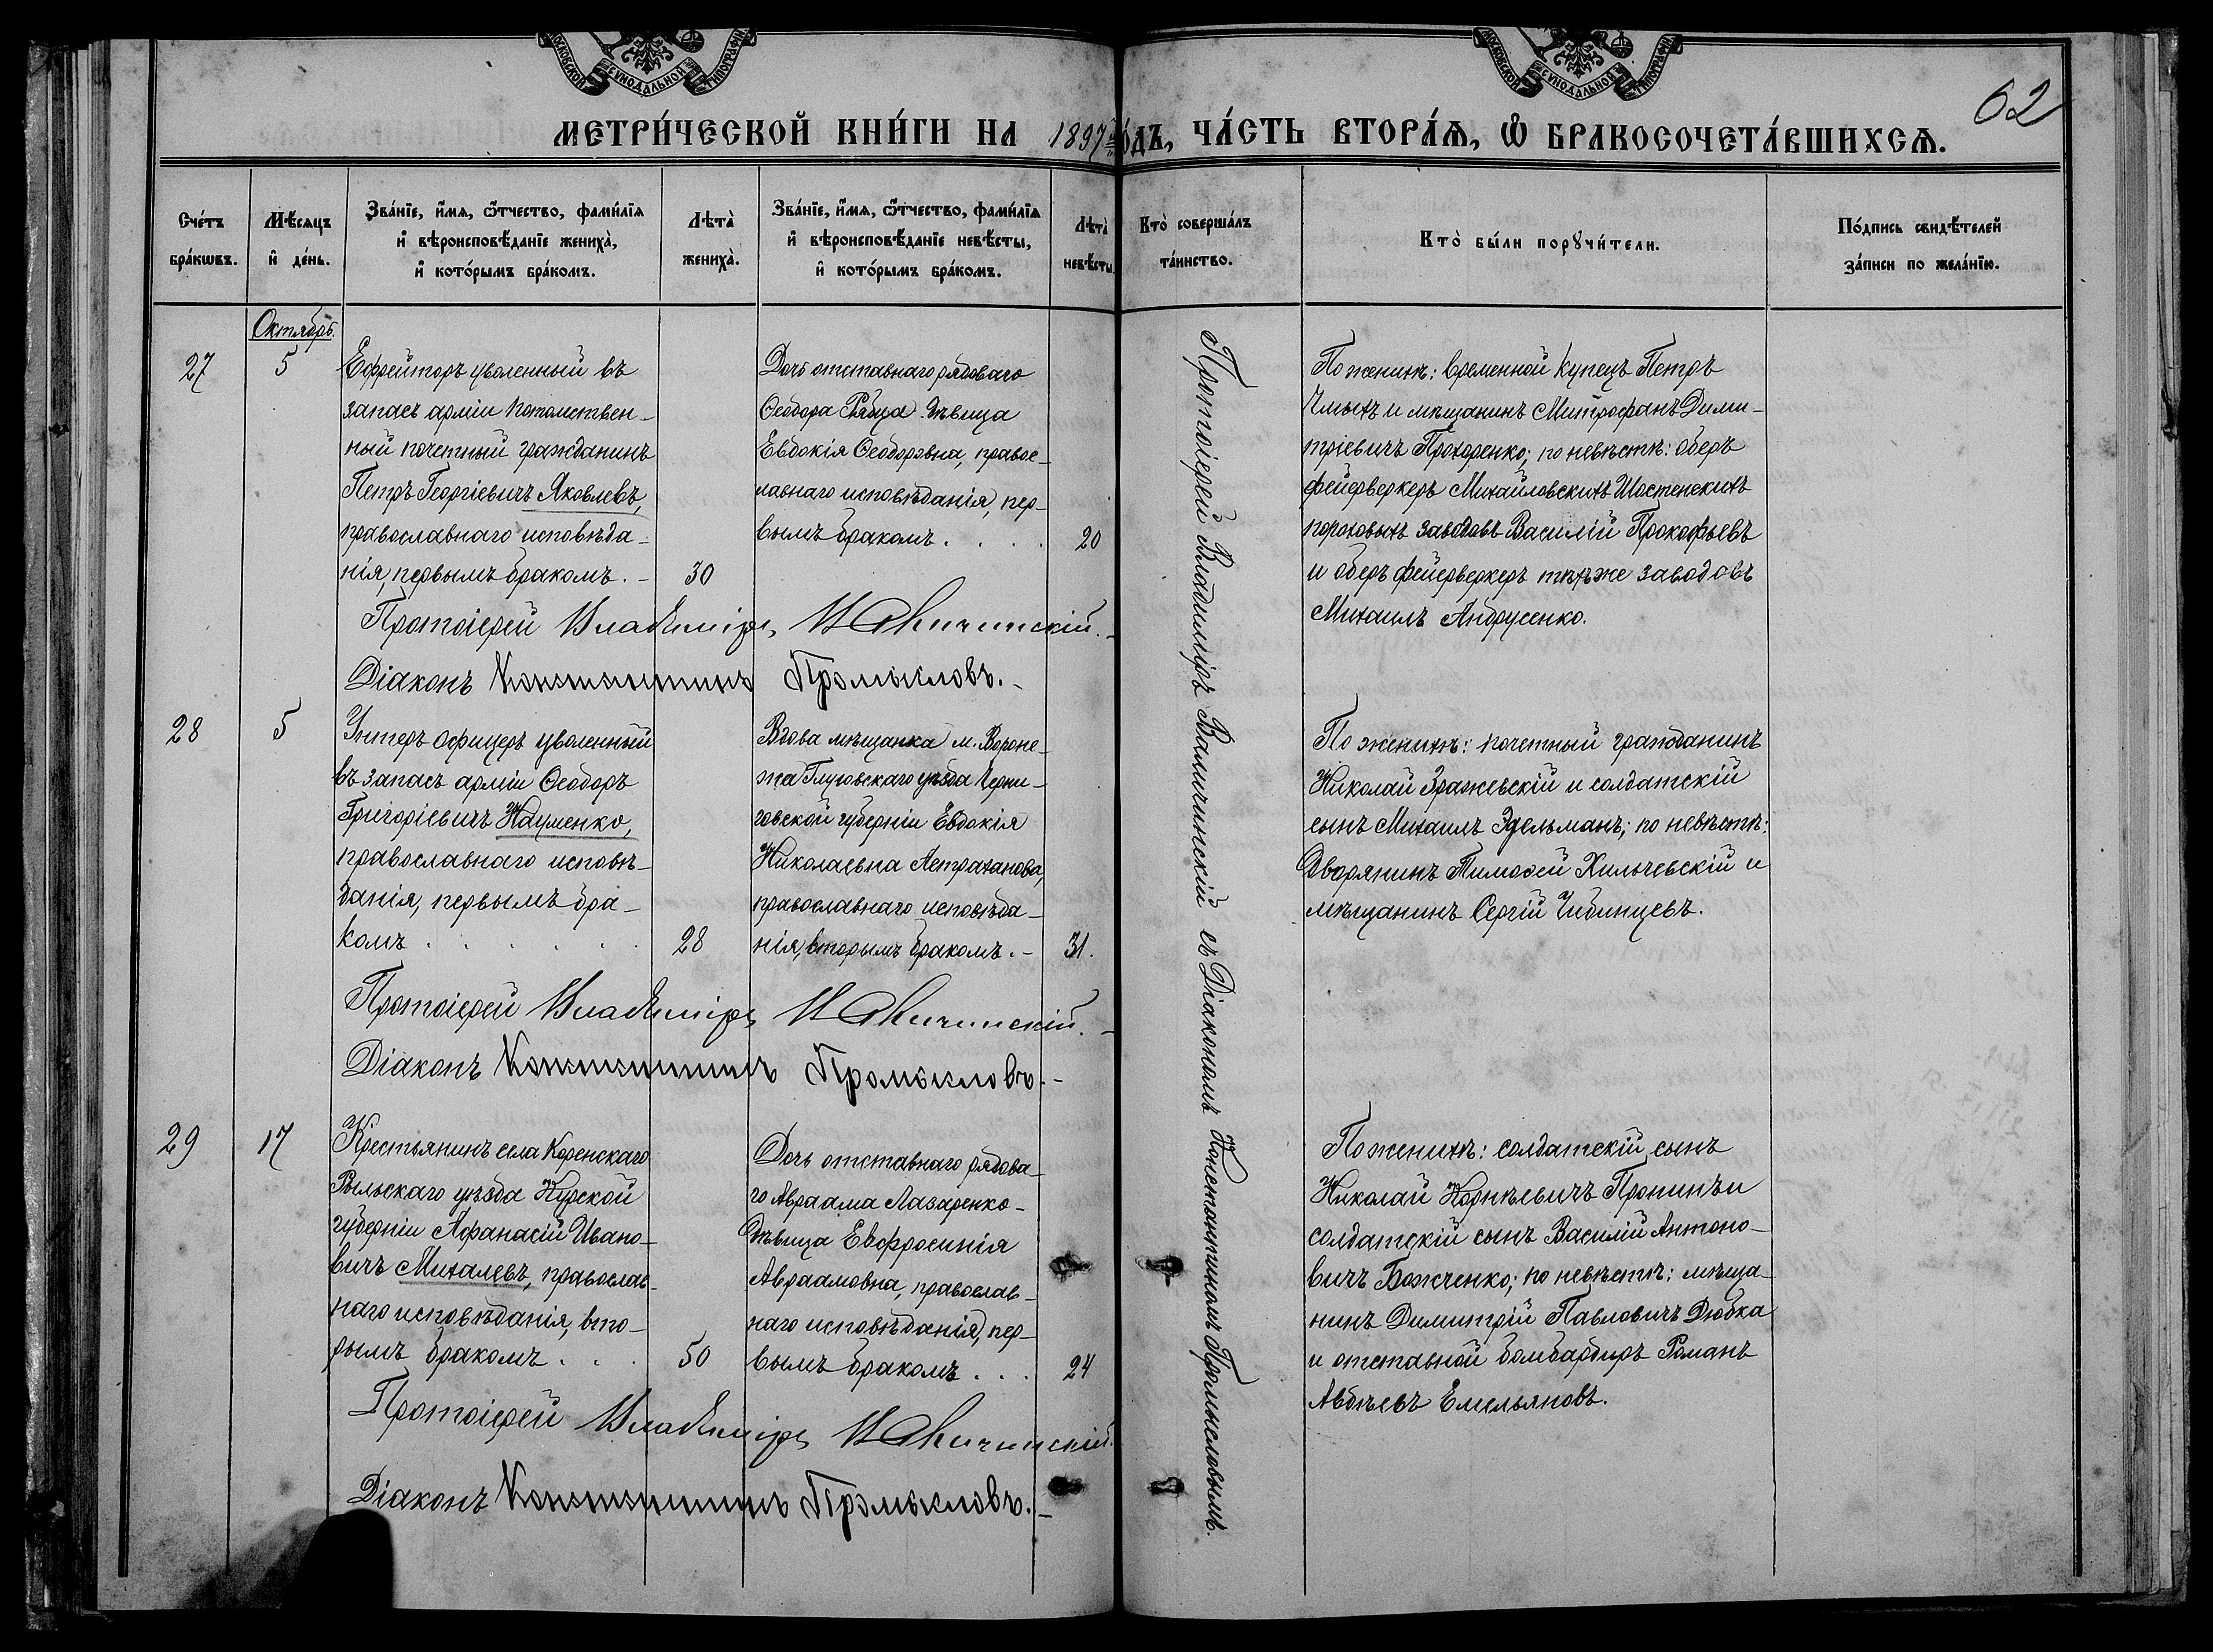 МОСКОВСКОЙ СѴНОДАЛЬНОЙ ТИПОГРАФІИ
МОСКОВСКОЙ СѴНОДАЛЬНОЙ ТИПОГРАФІИ
62
МЕТРИ́ЧЕСКОЙ КНИ́ГИ НА 1897 го́дъ, ЧА́СТЬ ВТОРА́Ѧ, Ѡ҆ БРАКОСОЧЕТА́ВШИХСѦ.
Сче́тъ бра́кѡвъ.
Мѣ́сяцъ и҆ де́нь.
Зва́нїе, и҆́мѧ, ѻ҆́тчество, фами́лїѧ и҆ вѣроисповѣ́данїе жениха̀, и҆ кото́рымъ бра́комъ.
Лѣта̀ жениха̀.
Зва́нїе, и҆́мѧ, ѻ҆́тчество, фами́лїѧ и҆ вѣроисповѣ́данїе невѣ́сты, и҆ кото́рымъ бра́комъ.
Лѣта̀ невѣ́сты.
Кто̀ соверша́лъ та́инство.
Кто̀ бы́ли порꙋчи́тели.
По́дпись свидѣ́телей за́писи по жела́нїю.
Октябрь.
27
5
Ефрейторъ уволенный въ
запасъ арміи потомствен-
ный почетный гражданинъ
Петръ Георгіевичъ Яковлевъ,
православнаго исповѣда-
нія, первымъ бракомъ. -
30
Дочь отставнаго рядоваго
Ѳеодора Рябца дѣвица
Евдокія Ѳеодоровна, правос-
лавнаго исповѣданія, пер-
вымъ бракомъ. . . .
20
Протоіерей Владиміръ Валичинскій съ Діакономъ Константиномъ Промысловымъ.
По женихѣ: временной купецъ Петръ
Чмыхъ и мѣщанинъ Митрофанъ Дими-
тріевичъ Прохоренко; по невѣстѣ: оберъ
фейерверкеръ Михайловскихъ Шостенскихъ
пороховыхъ заводовъ Василій Прокофьевъ
и оберъ фейерверкеръ тѣхъ же заводовъ
Михаилъ Андрусенко.
Протоіерей Владиміръ Валичинскій. -
Діаконъ Константинъ Промысловъ. -
28
5
Унтеръ офицеръ уволенный
въ запасъ арміи Ѳеодоръ
Григоріевичъ Науменко,
православнаго исповѣ-
данія, первымъ бра-
комъ . . . . . .
28
Вдова мѣщанка м. Вороне-
жа Глуховскаго уѣзда Черни-
говской губерніи Евдокія
Николаевна Астраханова,
православнаго исповѣда-
нія, вторымъ бракомъ. -
31.
По женихѣ: почетный гражданинъ
Николай Зражевскій и солдатскій
сынъ Михаилъ Эдельманъ; по невѣстѣ:
Дворянинъ Тимоѳей Хильчевскій и
мѣщанинъ Сергій Чибинцевъ.
Протоіерей Владиміръ Валичинскій. -
Діаконъ Константинъ Промысловъ. -
29
17
Крестьянинъ села Коренскаго
Рыльскаго уѣзда Курской
губерніи Афанасій Ивано-
вичъ Михалевъ, православ-
наго исповѣданія, вто-
рымъ бракомъ . . .
50
Дочь отставнаго рядова-
го Авраама Лазаренко -
Дѣвица Евфросинія
Авраамовна, православ-
наго исповѣданія, пер-
вымъ бракомъ . . .
24
По женихѣ: солдатскій сынъ
Николай Корнѣевичъ Пронинъ и
солдатскій сынъ Василій Антоно-
вичъ Божченко; по невѣстѣ: мѣща-
нинъ Димитрій Павловичъ Дюбка
и отставной бомбардиръ Романъ
Авдѣевъ Емельяновъ.
Протоіерей Владиміръ Валичинскій.
Діаконъ Константинъ Промысловъ. -